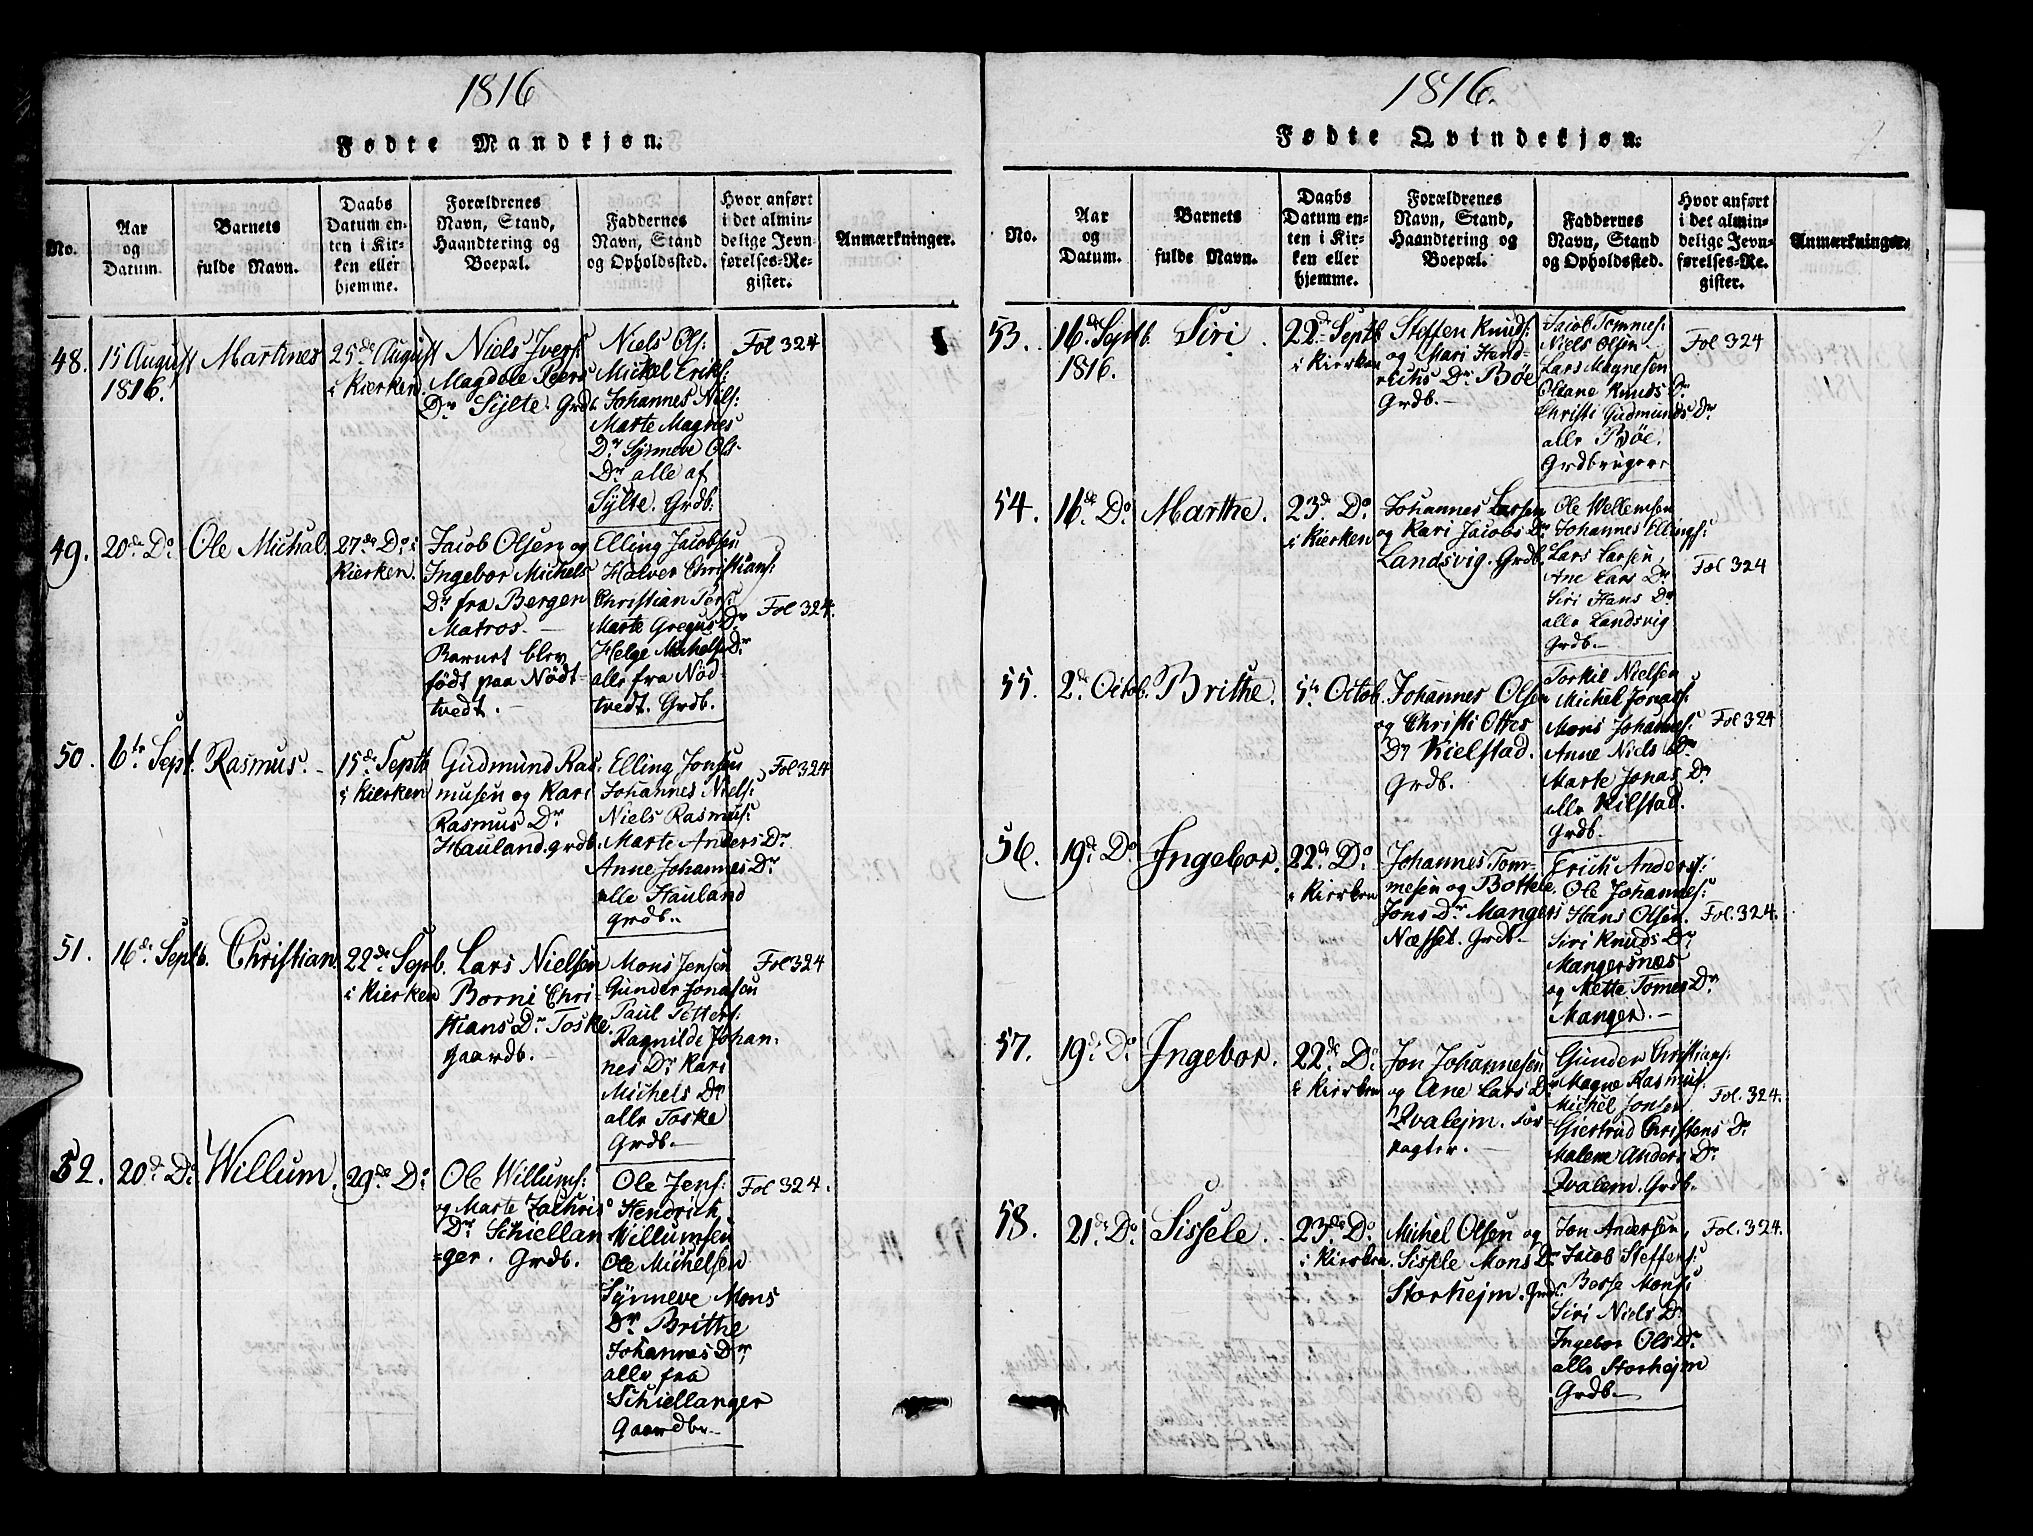 1816
Fødte Mandkjøn.
No.
Aar
og
Datum.
Barnets
fulde Navn.
Daabs
Datum en-
ten i Kir-
ken eller
hjemme.
Forældrenes
Navn, Stand,
Haandtering og
Boepæl.
Faddernes
Navn, Stand
og Opholdssted.
Hvor anført
i det almin-
delige Jevn-
førelses-Re-
gister.
Anmærkninger.
48.
15 August
1816.
Martines
25de August
i Kierken
Niels Ivers:
Magdele Peers
Dr Sylte. Grdb.
Niels Ols:
Mickel Eriks:
Johannes Nils:
Marte Magnes
Dr Synneve Ols
Dr alle af
Sylte. Grdb:
Fol 324
49.
20de Do
Ole Michal.
27de Do i
Kierken.
Jacob Olsen og
Ingebor Michels
Dr fra Bergen
Matros. —
Barnet blev
födt paa Nödt-
tvedt. —
Elling Jacobsen
Halver Christians:
Christian Tors:
Marte Gregus Dr
Helge Michels Dr
alle fra Nöd
tvedt. Grdb.
Fol 324.
50.
6te Sept.
Rasmus. —
15de Septb
i Kierken
Gudmund Ras-
musen og Kari
Rasmus Dr
Hauland. grdb.
Elling Jonsen
Johannes Niels:
Niels Rasmus:
Marte Anders Dr
Anne Johannes Dr
alle Hauland
grdb..
Fol 324
51.
16de Septb.
Christian
22de Sepb.
i Kierken
Lars Nielsen
Borni Chri-
stians Dr Toske.
Gaardb. —
Mons Jensen
Gunder Jonasen
Paul Petters:
Ragnilde Johan-
nes Dr Kari
Michels Dr
alle Toske
Grdb. —
Fol 324
52.
20de Do
Willum.
29de Do
Ole Willums:
og Marte Zachris
Dr Schiellan
=ger. Grdb.
Ole Jens:
Hendrick
Willumsen
Ole Michelsen
Synneve Mons
Dr Brithe
Johannes Dr,
alle fra
Schiellanger
Gaardbr—
Fol 324.
1816.
Fødte Qvindekjøn.
No.
Aar
og
Datum.
Barnets
fulde Navn.
Daabs
Datum en-
ten i Kir-
ken eller
hjemme.
Forældrenes
Navn, Stand,
Haandtering og
Boepæl.
Faddernes
Navn, Stand
og Opholdssted.
Hvor anført
i det almin-
delige Jevn-
førelses-Re-
gister.
Anmærkninger.
53.
16de Septb.
1816.
Siri.
22de Septb
i Kierken
Steffen Knuds:
og Mari Hend-
richs Dr Böe
Grdb. —
Jacob Tommes:
Niels Olsen
Lars Magnesen
Oltane Knuds Dr
Christi Gudmunds Dr
alle Böe.
Grdbruger
Fol 324
54.
16de Do
Marthe.
23de Do
i Kierken
Johannes Larsen
og Kari Jacobs Dr
Landsvig. Grdb.
Ole Wellemsen
Johannes Ellings:
Lars Larsen,
Ane Lars Dr
Siri Hans Dr
alle Landsvig
Grdb. —
Fol 324
55.
2de Octob.
Brithe.
5te Octob.
Johannes Olsen
og Christi Ottes
Dr Kielstad.
Grdb.
Torkil Nielsen
Michel Jonas:
Mons Johannes:
Anne Niels Dr
Marte Jonas Dr
alle Kilstad.
Grdb.
Fol 324
56.
19de Do
Ingebor.
22de Do
i Kierken
Johannes Tom-
mesen og Bottele
Jons Dr Mangers
Næsset. Grdb—
Erich Anders:
Ole Johannes:
Hans Olsen.
Siri Knuds Dr
Mangersnæs
og Mette Tomes Dr
Manger. —
Fol. 324.
57.
19de Do
Ingebor.
22de Do
i Kierken
Jon Johannesen
og Ane Lars Dr
Qvalejm. For-
pagter. —
Gunder Christians:
Magne Rasmus:
Michel Jonsen
Giertrud Christens Dr
Malene Anders Dr
Qvalem. Grdb.
Fol. 324.
58.
21de Do
Sissele.
23de Do
i Kierken.
Michel Olsen og
Sissele Mons Dr
Storhejm. Grdb.
Jon Andersen,
Jacob Steffens:
Besse Mons:
Siri Niels Dr
Ingebor Ols Dr
alle Storhejm
Grdb. —
Fol. 324.